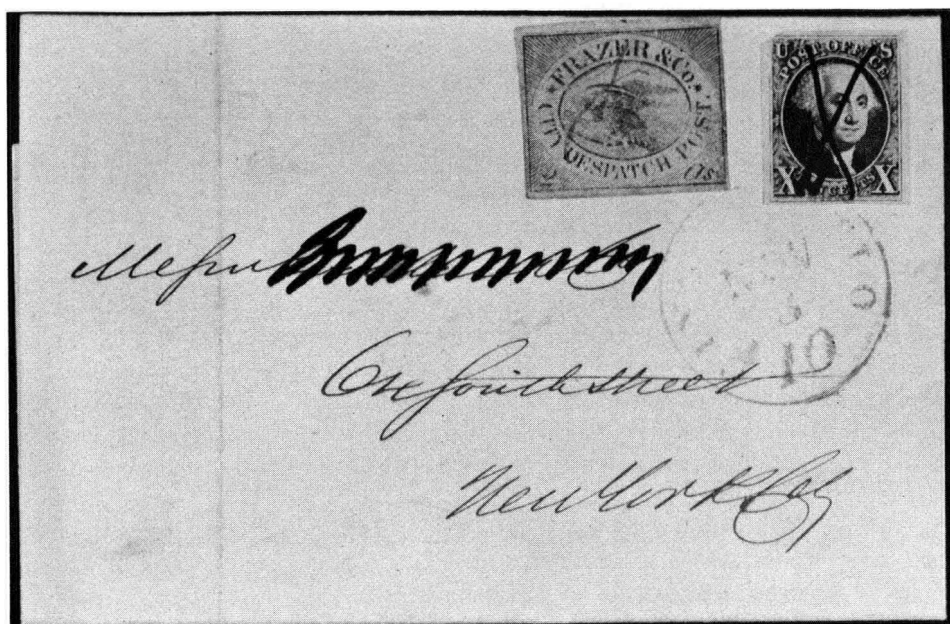 ★ FRAZER & Co. ★
CITY DESPATCH POST.
2 Cts
U S
POST OFFICE
X CENTS X
Messrs
South street
New York City
10